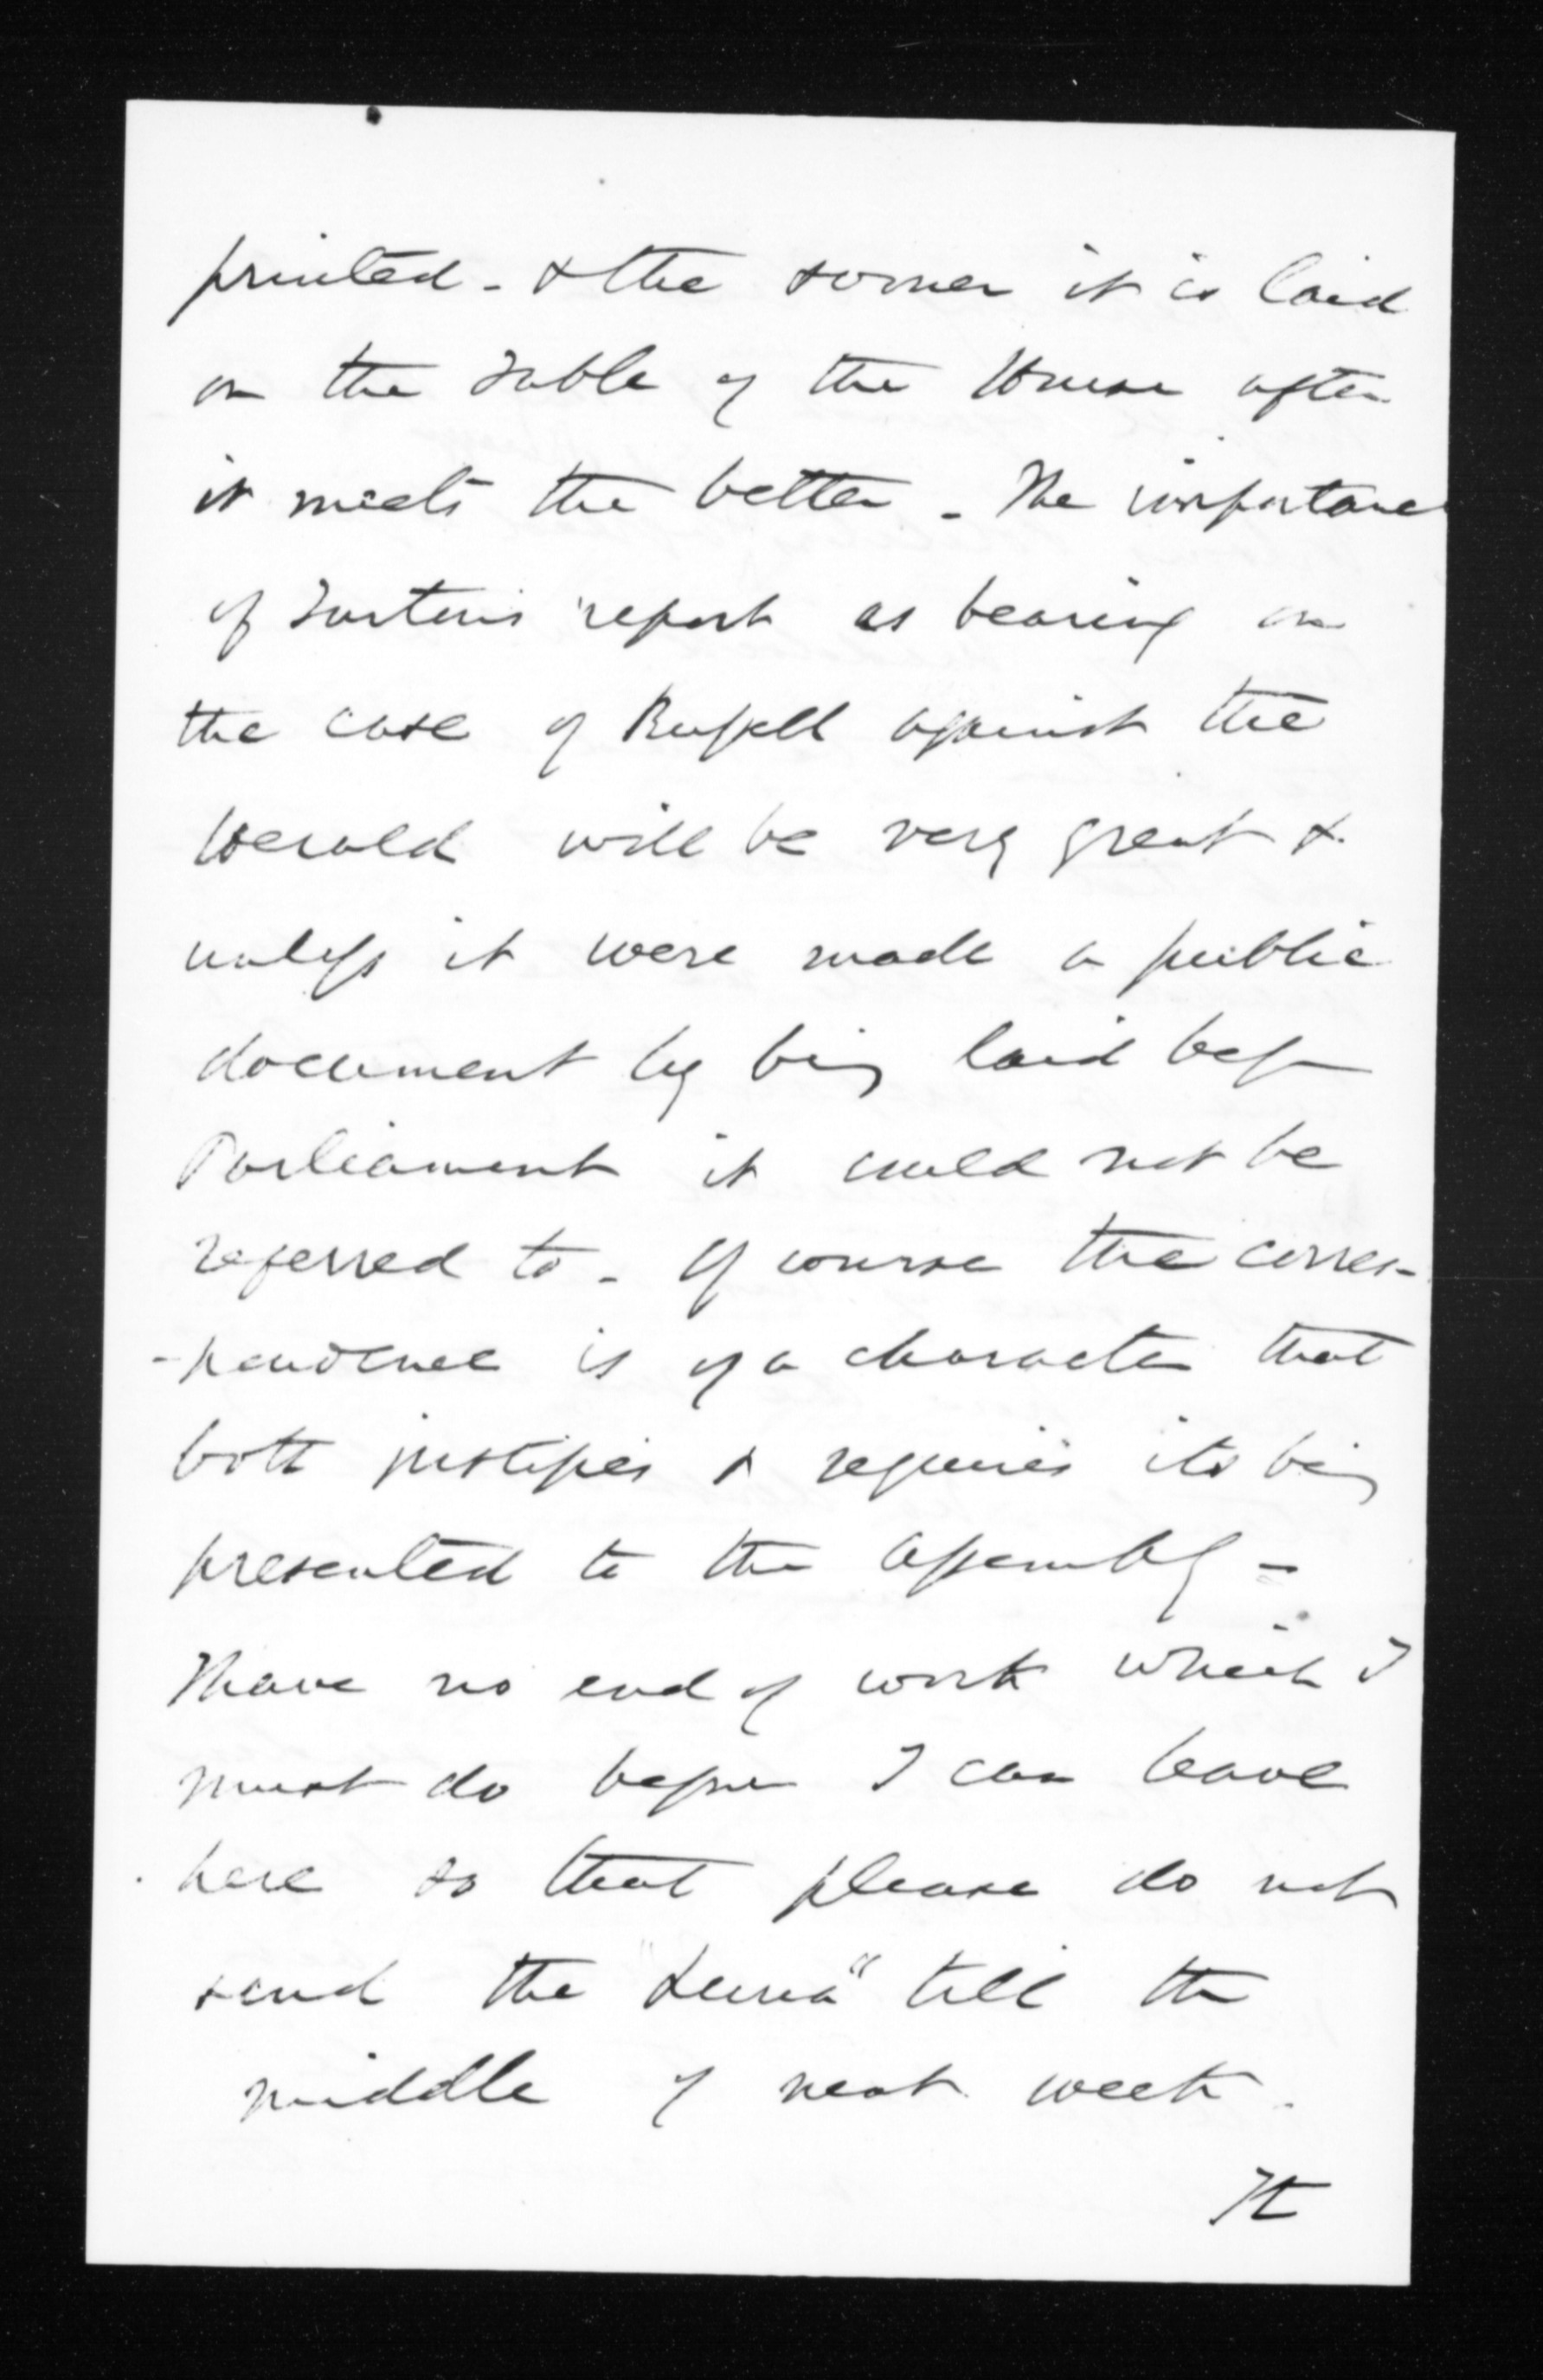 printed - & the sooner it is laid
on the Table of the House after
it meets the better - The importance
of report as bearing on
the case of Russell against the
Herald will be very great &
unless it were made a public
document by being laid before
Parliament it could not be
referred to - Of course the corres-
-pondence is of a character that
both justifies & requires its being
presented to the Assembly -
I have no end of work which I
must do before I can leave
here so that please do not
send the "Luna" till the
middle of next week.
It